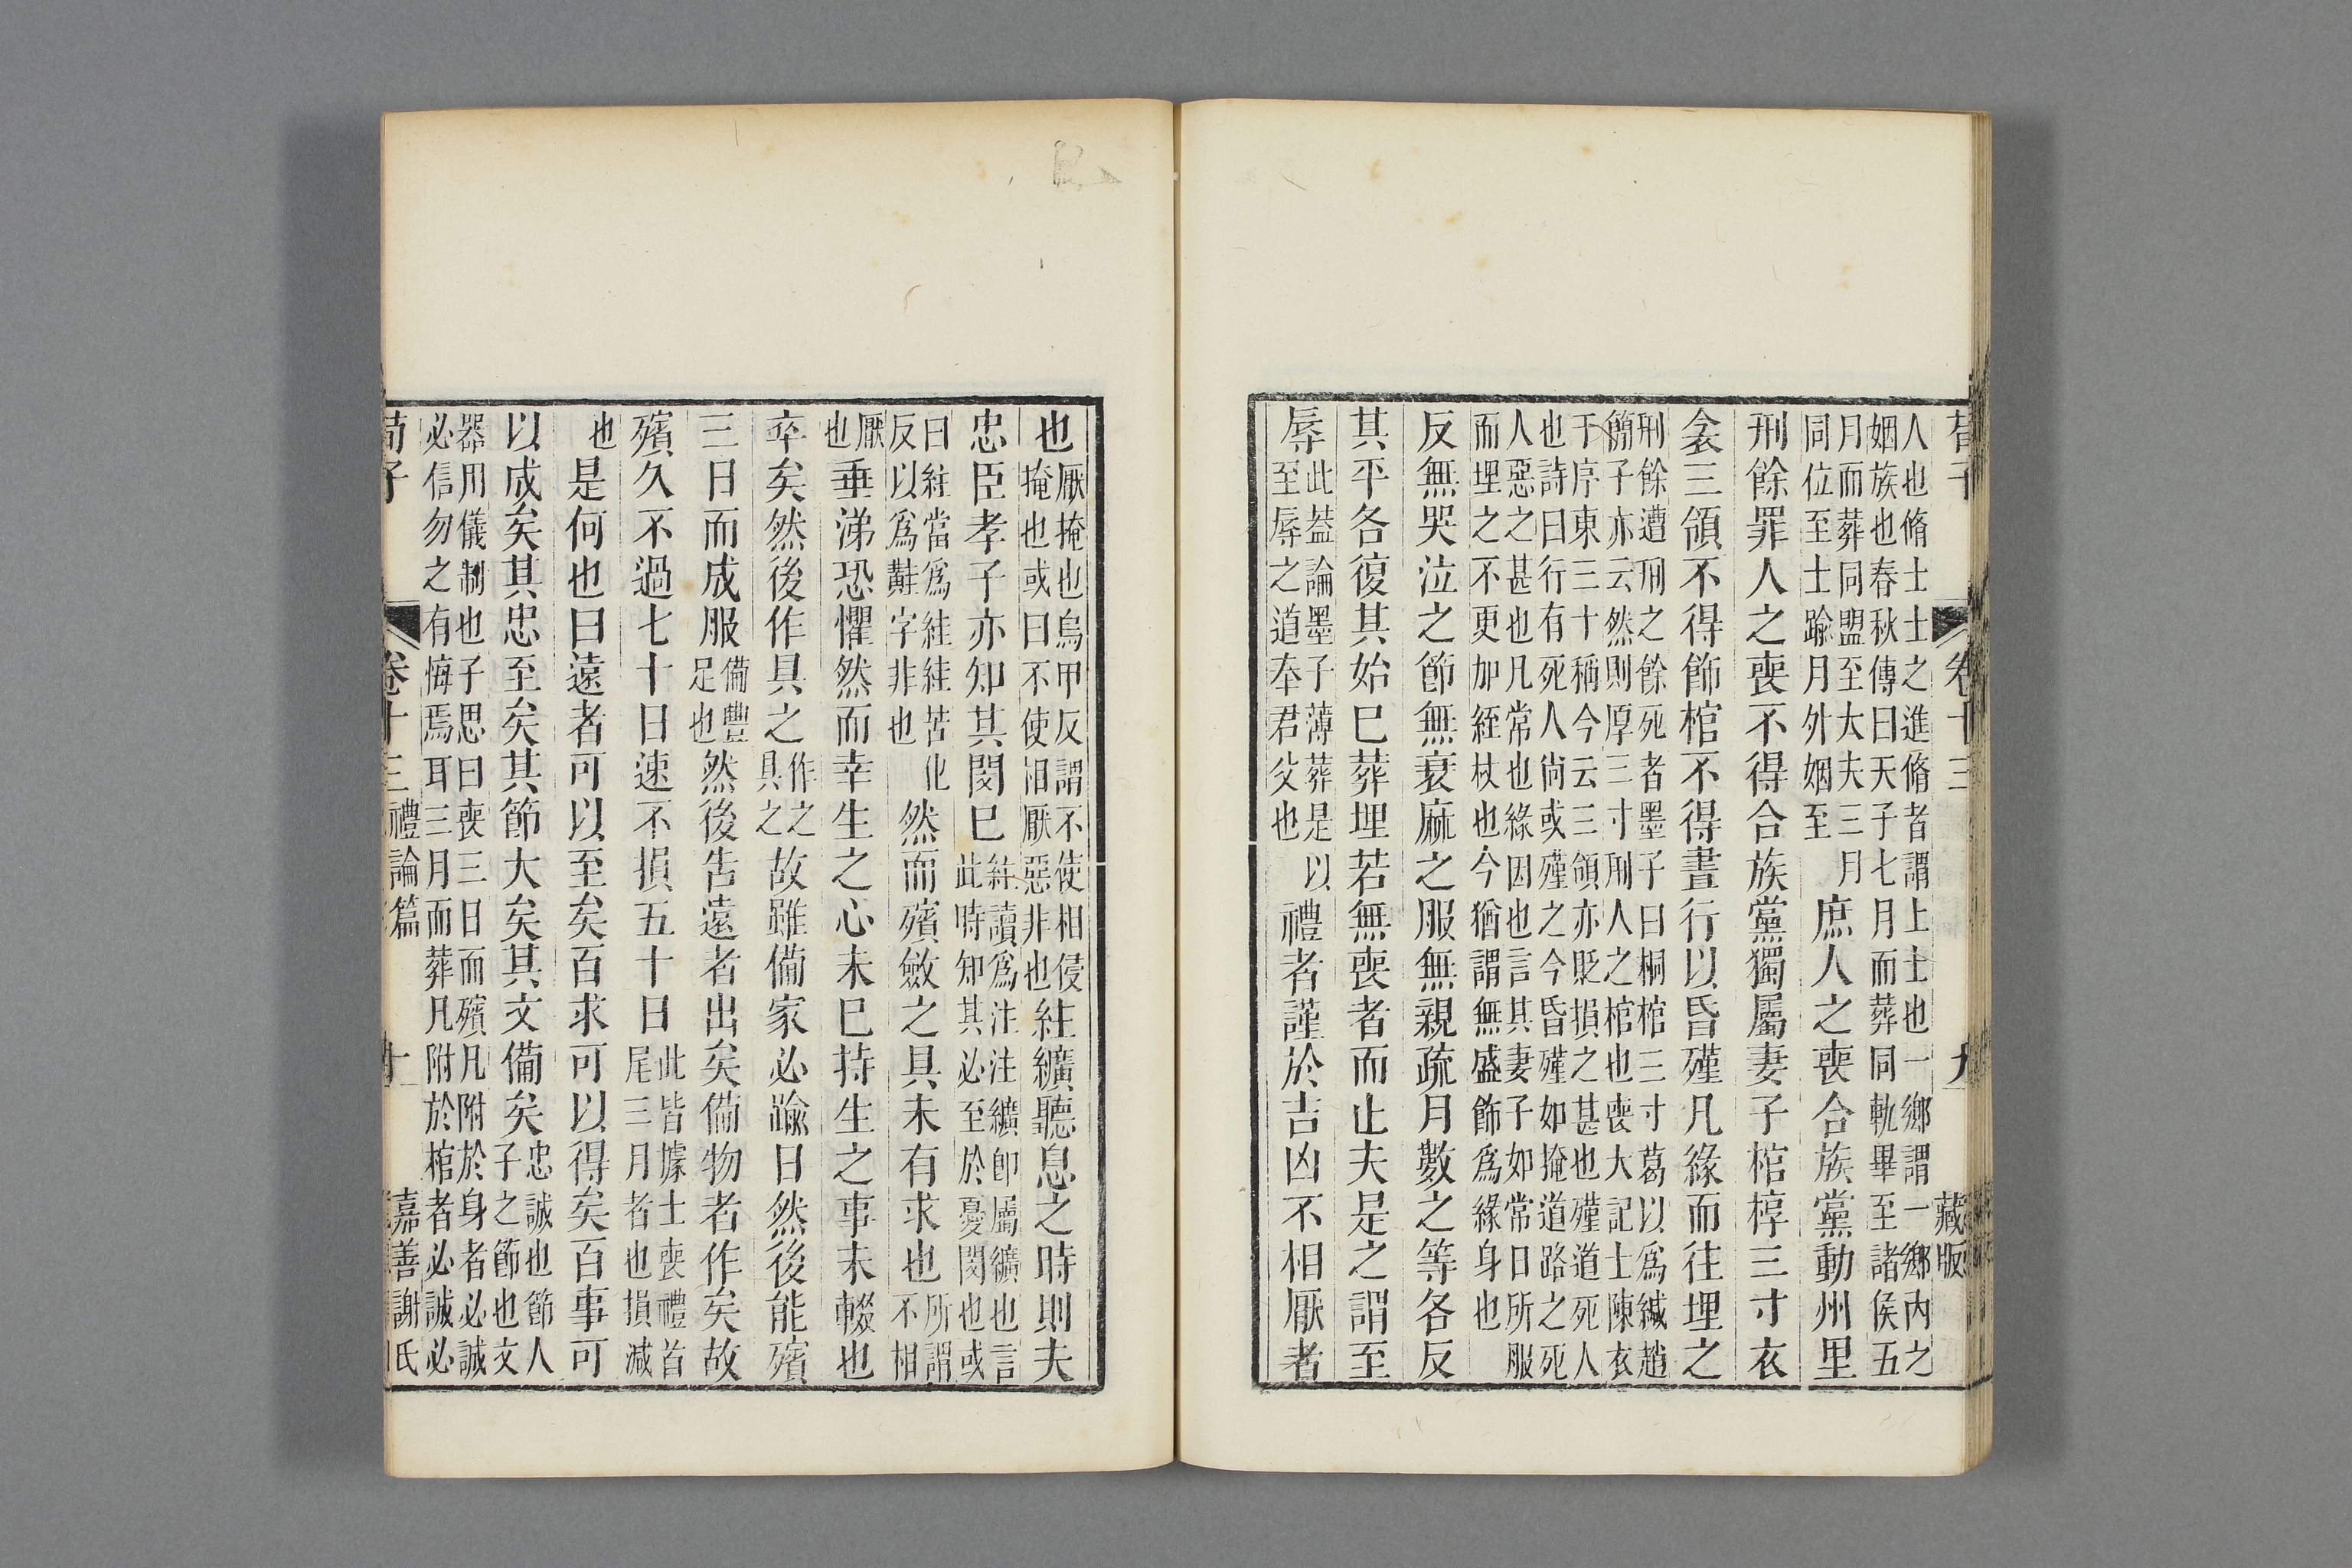 荀子 卷十三 九 藏版
人也脩士士之進脩者謂上士也一鄉謂一鄉內之
姻族也春秋傳曰天子七月而葬同軌畢至諸侯五
月而葬同盟至大夫三月
同位至士踰月外姻至
庶人之喪合族黨動州里
刑餘罪人之喪不得合族黨獨屬妻子棺椁三寸衣
衾三領不得飾棺不得晝行以昏殣凡緣而往埋之
刑餘遭刑之餘死者墨子曰桐棺三寸葛以爲緘趙
簡子亦云然則厚三寸刑人之棺也喪大記士陳衣
于序東三十稱今云三領亦貶損之甚也殣道死人
也詩曰行有死人尙或殣之今昏殣如掩道路之死
人惡之甚也凡常也緣因也言其妻子如常日所服
而埋之不更加絰杖也今猶謂無盛飾爲緣身也
反無哭泣之節無衰麻之服無親疏月數之等各反
其平各復其始已葬埋若無喪者而止夫是之謂至
辱
此葢論墨子薄葬是以
至辱之道奉君父也
禮者謹於吉凶不相厭者
也
厭掩也烏甲反謂不使相侵
掩也或曰不使相厭惡非也
紸纊聽息之時則夫
忠臣孝子亦知其閔已
紸讀爲注注纊卽屬纊也言
此時知其必至於憂閔也或
曰紸當爲絓絓苦化
反以爲黈字非也
然而殯斂之具未有求也
所謂
不相
厭
也
垂涕恐懼然而幸生之心未已持生之事未輟也
卒矣然後作具之
作之
具之
故雖備家必踰日然後能殯
三日而成服
備豐
足也
然後告遠者出矣備物者作矣故
殯久不過七十日速不損五十日
此皆據士喪禮首
尾三月者也損減
也
是何也曰遠者可以至矣百求可以得矣百事可
以成矣其忠至矣其節大矣其文備矣
忠誠也節人
子之節也文
器用儀制也子思曰喪三日而殯凡附於身者必誠
必信勿之有悔焉耳三月而葬凡附於棺者必誠必
荀子 卷十三 禮論篇 十 嘉善謝氏